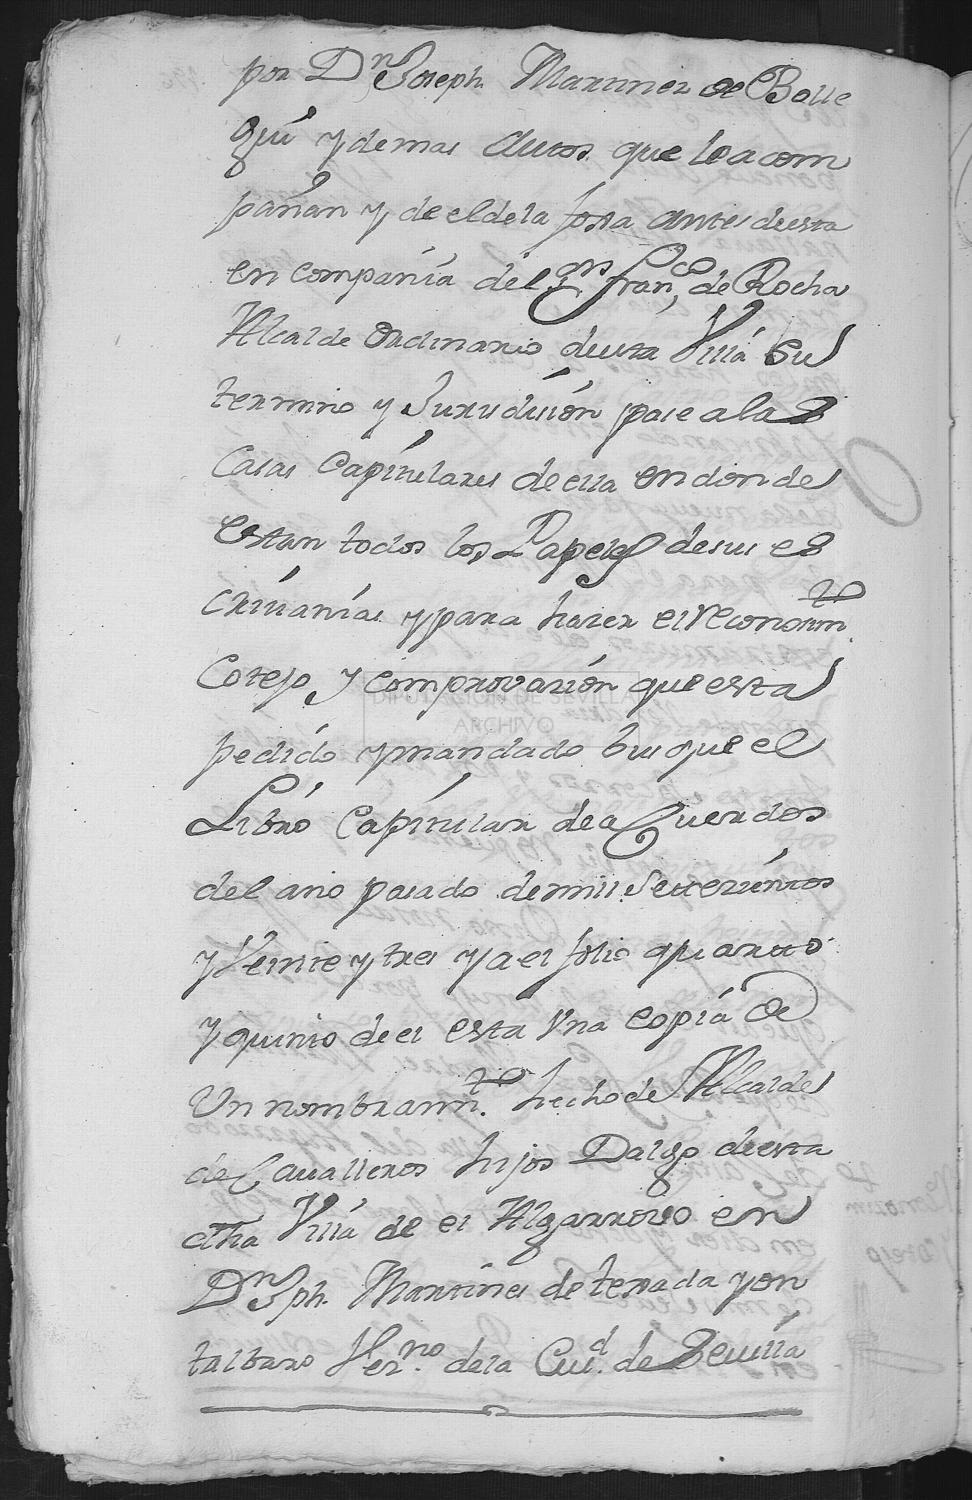 por Dn Joseph Martinez de Bolle
gui y demas Autos que le acom
pañan y de el de la foxa antes de esta
en compañia del Sr Dn Franco de Rocha
Alcalde ordinario de esta Villa su
termino y Jurisdision pase a las
Casas Capitulares de ella en donde
estan todos los Papeles de sus es
crivanias y para hacer el reconosimto
Cotejo y comprovazion que esta
DIPUTACION DE SEVILLA
ARCHIVO
pedido y mandado busque el
Libro Capitular de aCuerdos
del año pasado de mil Setezientos
y Veinte y tres y a el folio quarto
y quinto de el esta Vna copia de
Un nombramto hecho de Alcaldes
de Cavalleros hijos Dalgo de esta
dha Villa de el Algarrovo en
Dn Jph. Martines de texada y on
talbaro Vezno de la Ciud de Sevilla